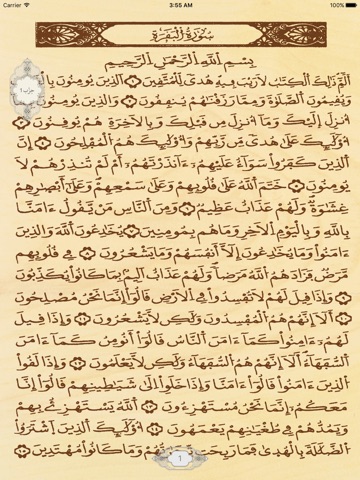 Carrier 3:55 AM 100%
سُورَةُ الْبَقَرَةِ
بِسْمِ اِللَّهِ اِلرَّحْمَٰنِ اِلرَّحِيمِ
أَلَٓمِّٓ ذَٰلِكَ اَلْكِتَٰبُ لَا رَيْبَ فِيهِ هُدىً لِّلْمُتَّقِينَ ١ اَلذِينَ يُومِنُونَ
وَيُقِيمُونَ اَلصَّلَوٰةَ وَمِمَّا رَزَقْنَٰهُمْ يُنفِقُونَ ٢ وَالذِينَ يُومِنُونَ
أُنزِلَ إِلَيْكَ وَمَآ أُنزِلَ مِن قَبْلِكَ وَبِالَاخِرَةِ هُمْ يُوقِنُونَ ٣
أُوْلَٰٓئِكَ عَلَىٰ هُدىً مِّن رَّبِّهِمْ وَأُوْلَٰٓئِكَ هُمُ اُلْمُفْلِحُونَ ٤ إِنَّ
اَلذِينَ كَفَرُواْ سَوَآءٌ عَلَيْهِمُۥٓ ءَآنذَرْتَهُمُۥٓ أَمْ لَمْ تُنذِرْهُمْ لَا
يُومِنُونَ ٥ خَتَمَ اَللَّهُ عَلَىٰ قُلُوبِهِمْ وَعَلَىٰ سَمْعِهِمْ وَعَلَىٰٓ أَبْصٰ۪رِهِمْ
غِشَٰوَةٌ وَلَهُمْ عَذَابٌ عَظِيمٌ ٦ وَمِنَ اَلنَّاسِ مَنْ يَّقُولُ ءَامَنَّا
بِاللَّهِ وَبِالْيَوْمِ اِلَاخِرِ وَمَا هُم بِمُومِنِينَ ٧ يُخَٰدِعُونَ اَللَّهَ وَالذِينَ
ءَامَنُواْ وَمَا يُخَٰدِعُونَ إِلَّآ أَنفُسَهُمْ وَمَا يَشْعُرُونَ ٨ فِے قُلُوبِهِم
مَّرَضٌ فَزَادَهُمُ اُللَّهُ مَرَضاً وَلَهُمْ عَذَابٌ اَلِيمٌۢ بِمَا كَانُواْ يُكَذِّبُونَ ٩
وَإِذَا قِيلَ لَهُمْ لَا تُفْسِدُواْ فِے اِلَارْضِ قَالُوٓاْ إِنَّمَا نَحْنُ مُصْلِحُونَ
١٠ أَلَآ إِنَّهُمْ هُمُ اُلْمُفْسِدُونَ وَلَٰكِن لَّا يَشْعُرُونَ ١١ وَإِذَا قِيلَ
لَهُمُۥٓ ءَامِنُواْ كَمَآ ءَامَنَ اَلنَّاسُ قَالُوٓاْ أَنُومِنُ كَمَآ ءَامَنَ
اَلسُّفَهَآءُ اَ۬لَآ إِنَّهُمْ هُمُ اُلسُّفَهَآءُ وَلَٰكِن لَّا يَعْلَمُونَ ١٢ وَإِذَا لَقُواْ
اُلذِينَ ءَامَنُواْ قَالُوٓاْ ءَامَنَّا وَإِذَا خَلَوِاْ اِلَىٰ شَيَٰطِينِهِمْ قَالُوٓاْ إِنَّا
مَعَكُمُۥٓ إِنَّمَا نَحْنُ مُسْتَهْزِءُونَ ١٣ اَللَّهُ يَسْتَهْزِئُ بِهِمْ
وَيَمُدُّهُمْ فِے طُغْيَٰنِهِمْ يَعْمَهُونَ ١٤ أُوْلَٰٓئِكَ اَلذِينَ اَشْتَرَوُاْ
اُلضَّلَٰلَةَ بِالْهُدَىٰ فَمَا رَبِحَت تِّجَٰرَتُهُمْ وَمَا كَانُواْ مُهْتَدِينَ ١٥
1